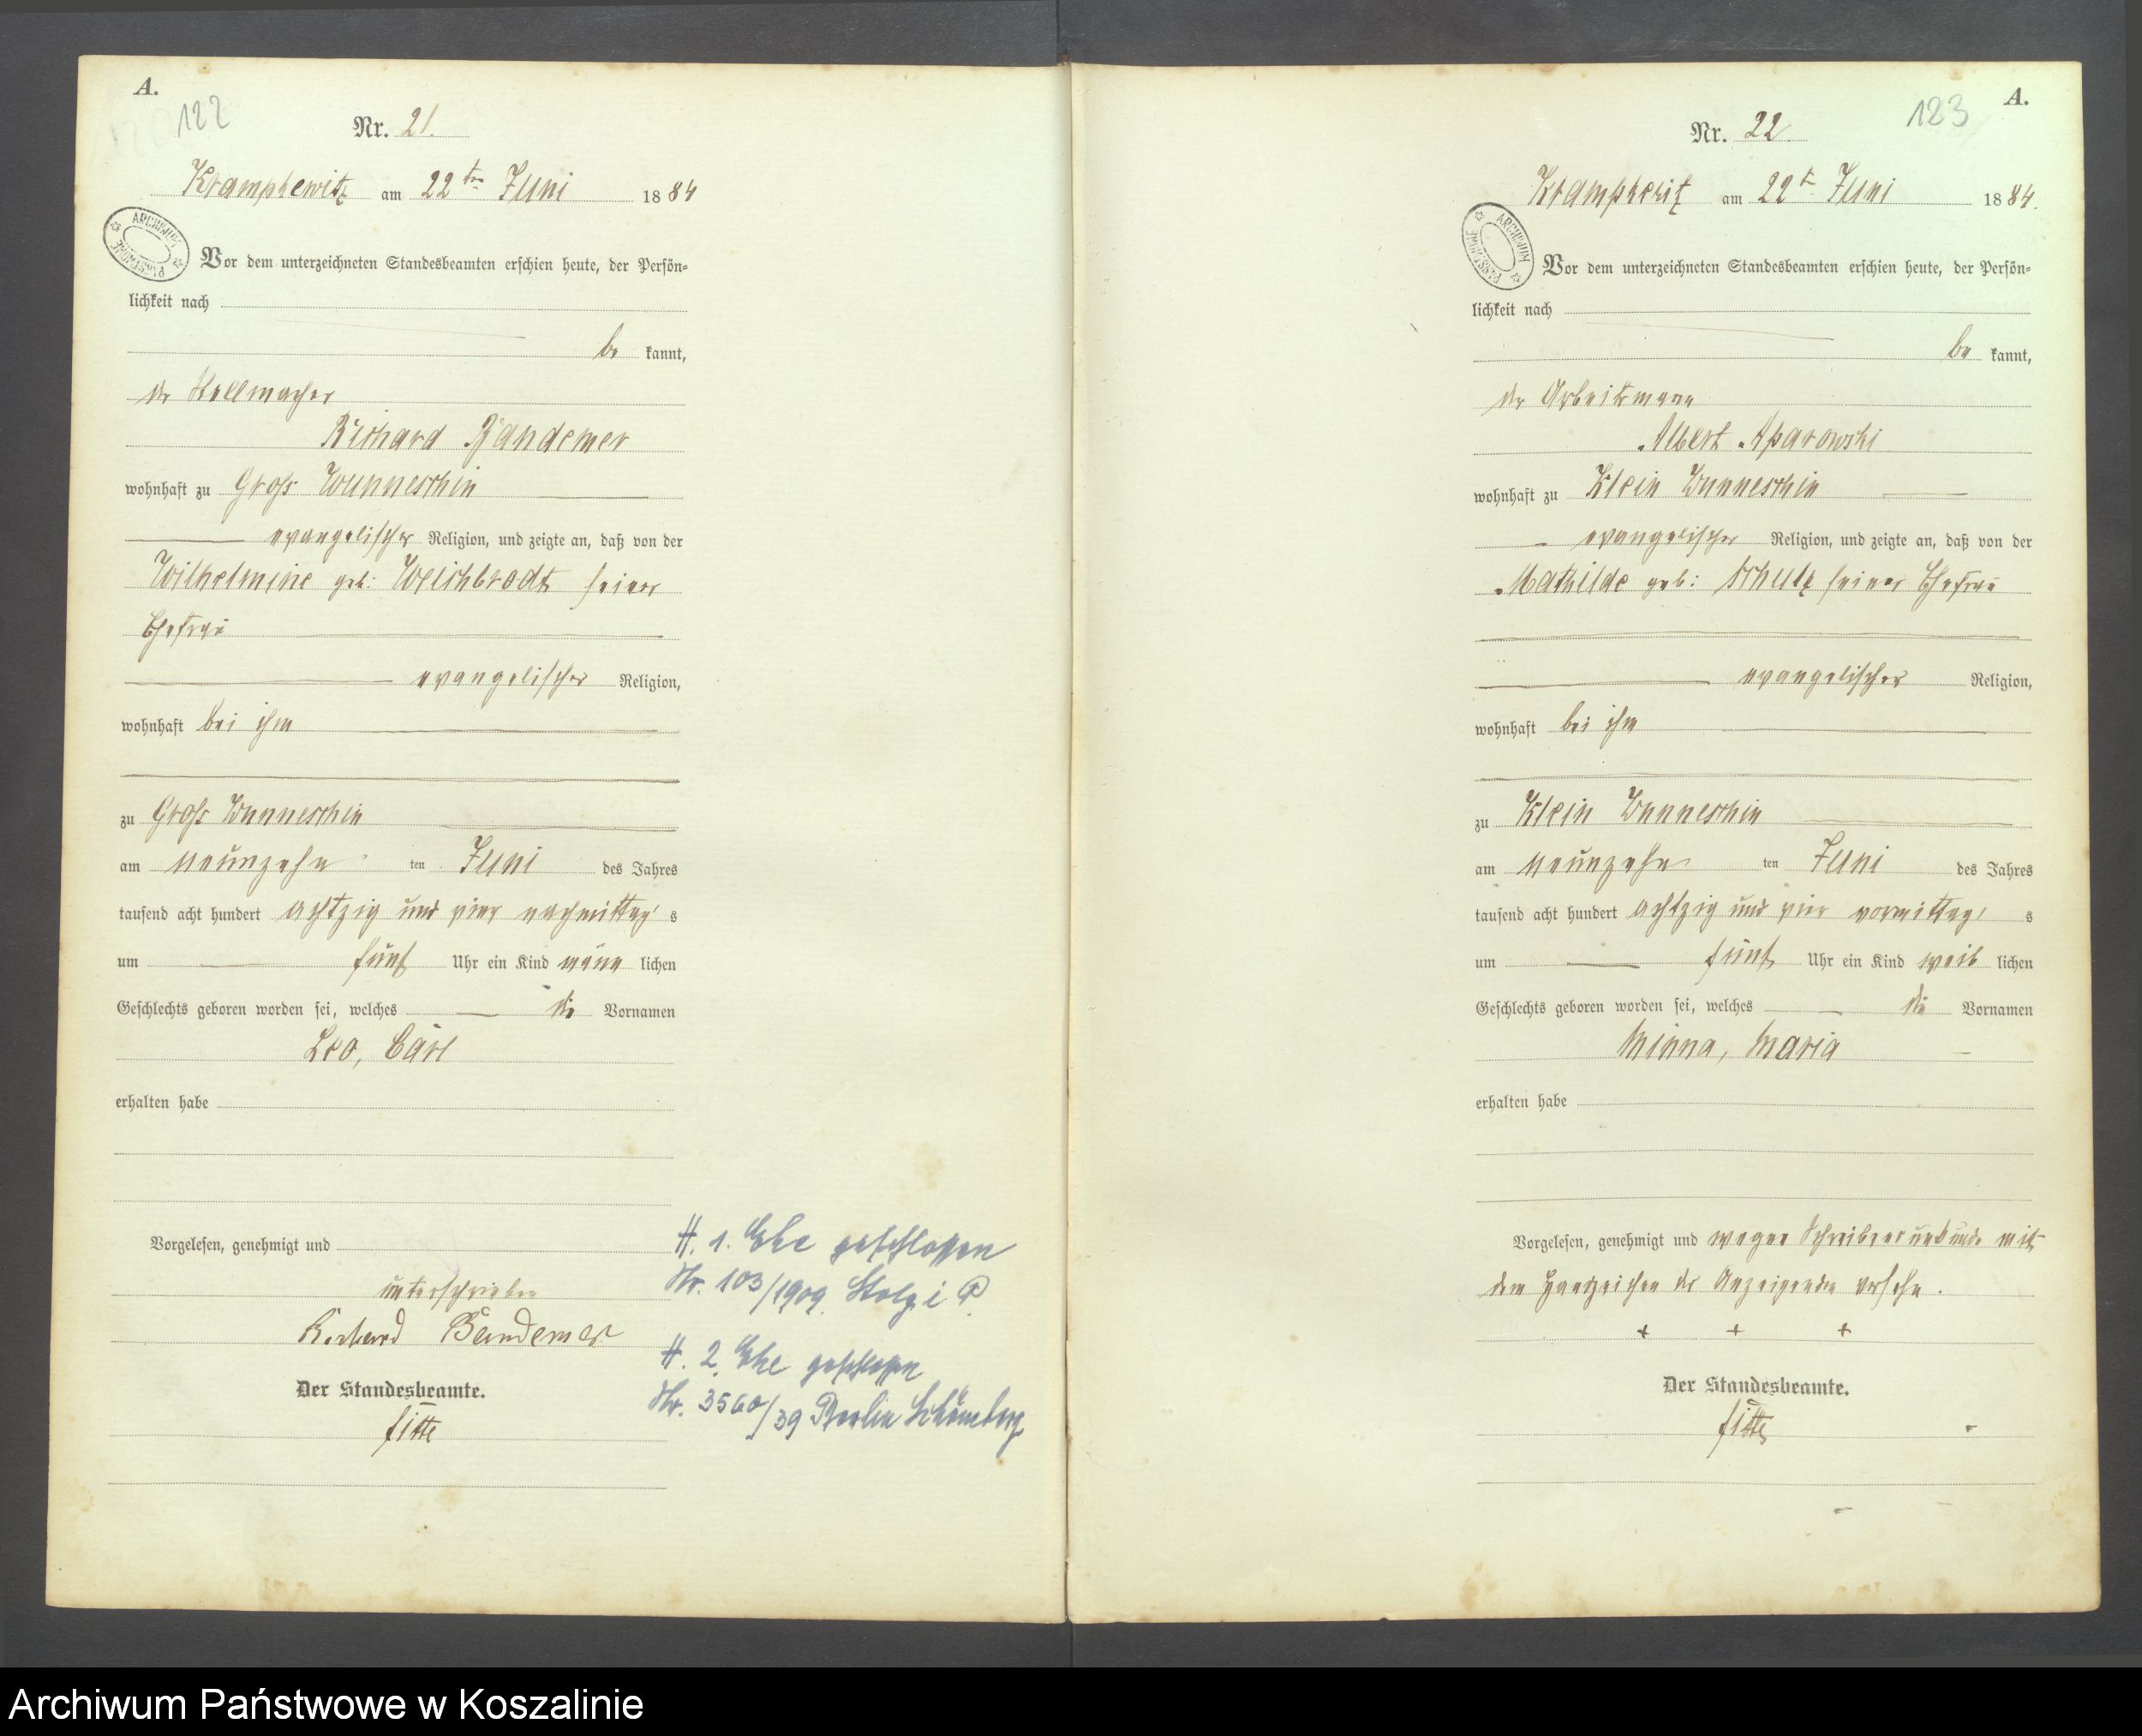 A.
122
Nr. 21.
Krampkewitz am 22ten Juni 1884
ARCHIWUM PAŃSTWOWE
Vor dem unterzeichneten Standesbeamten erschien heute, der Persön-
lichkeit nach
be kannt,
der Stellmacher
Richard Bandemer
wohnhaft zu Gross Wunneschin
evangelischer Religion, und zeigte an, daß von der
Wilhelmine geb: Weichbrodt seiner
Ehefrau
evangelischer Religion,
wohnhaft bei ihm
zu Gross Wunneschin
am neunzehn ten Juni des Jahres
tausend acht hundert achtzig und vier nachmittag s
um fünf Uhr ein Kind männ lichen
Geschlechts geboren worden sei, welches die Vornamen
Leo, Carl
erhalten habe
Vorgelesen, genehmigt und
unterschrieben
Richard Bandemer
Der Standesbeamte.
Fitte
1. Ehe geschlossen
Nr. 103/1909 Stolp i P.
2. Ehe geschlossen
Nr. 3560/39 Berlin Schöneberg
A.
123
Nr. 22
Krampkewitz am 22t Juni 1884.
ARCHIWUM PAŃSTWOWE
Vor dem unterzeichneten Standesbeamten erschien heute, der Persön-
lichkeit nach
be kannt,
der Arbeitsmann
Albert Aparowski
wohnhaft zu Klein Wunneschin
evangelischer Religion, und zeigte an, daß von der
Mathilde geb: Schulz seiner Ehefrau
evangelischer Religion,
wohnhaft bei ihm
zu Klein Wunneschin
am neunzehn ten Juni des Jahres
tausend acht hundert achtzig und vier vormittag s
um fünf Uhr ein Kind weib lichen
Geschlechts geboren worden sei, welches die Vornamen
Minna, Maria
erhalten habe
Vorgelesen, genehmigt und wegen Schreibensunkunde mit
dem Handzeichen des Anzeigenden versehn.
+ + +
Der Standesbeamte.
Fitte
Archiwum Państwowe w Koszalinie